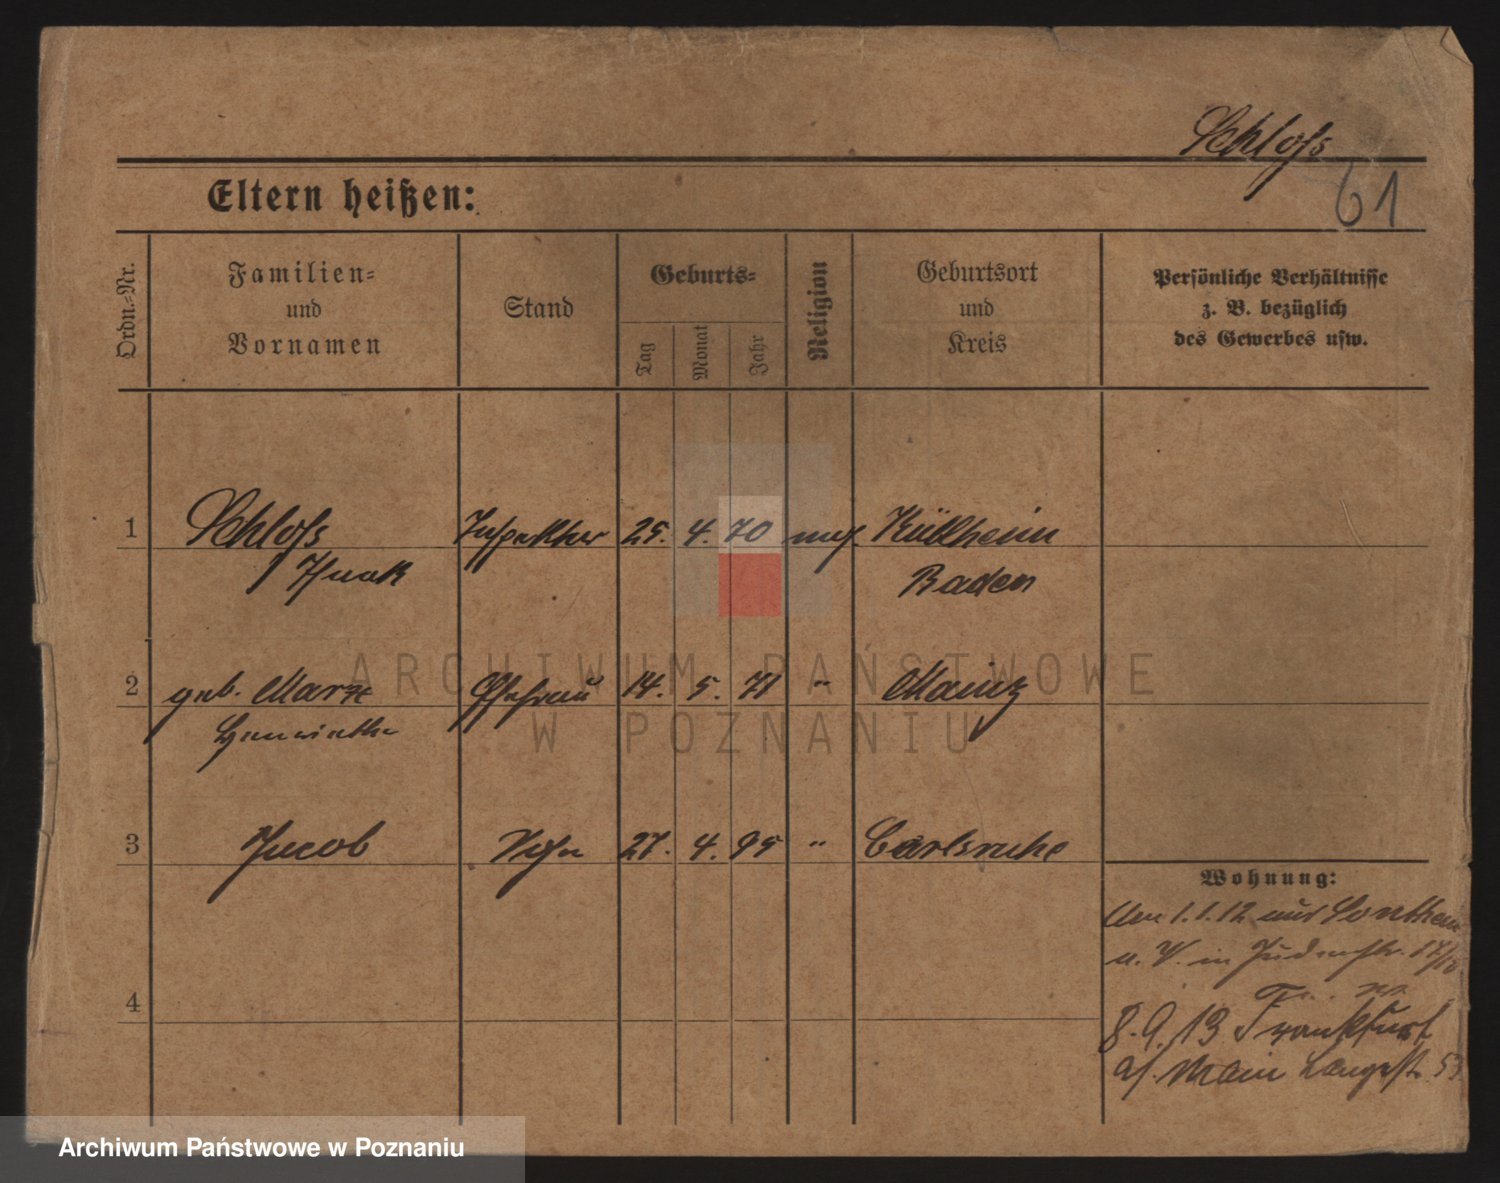 Schloss
61
Eltern heißen:
Ordn.-Nr.
Familien-
und
Vornamen
Stand
Geburts-
Tag
Monat
Jahr
Religion
Geburtsort
und
Kreis
Persönliche Verhältnisse
z. B. bezüglich
des Gewerbes usw.
1 Schloss Inspektor 25. 4. 70 mos. Külsheim
Isaak Baden
2 geb. Marx Ehefrau 14. 5. 71 " Mainz
Henriette
3 Jacob Sohn 27. 4. 95 " Carlsruhe
Wohnung:
1.1.12 aus Sontheim
u. W. in Judenstr. 17/18
4
8.9.13 Frankfurt
a/. Main Langestr. 53
ARCHIWUM PAŃSTWOWE
W POZNANIU
Archiwum Państwowe w Poznaniu